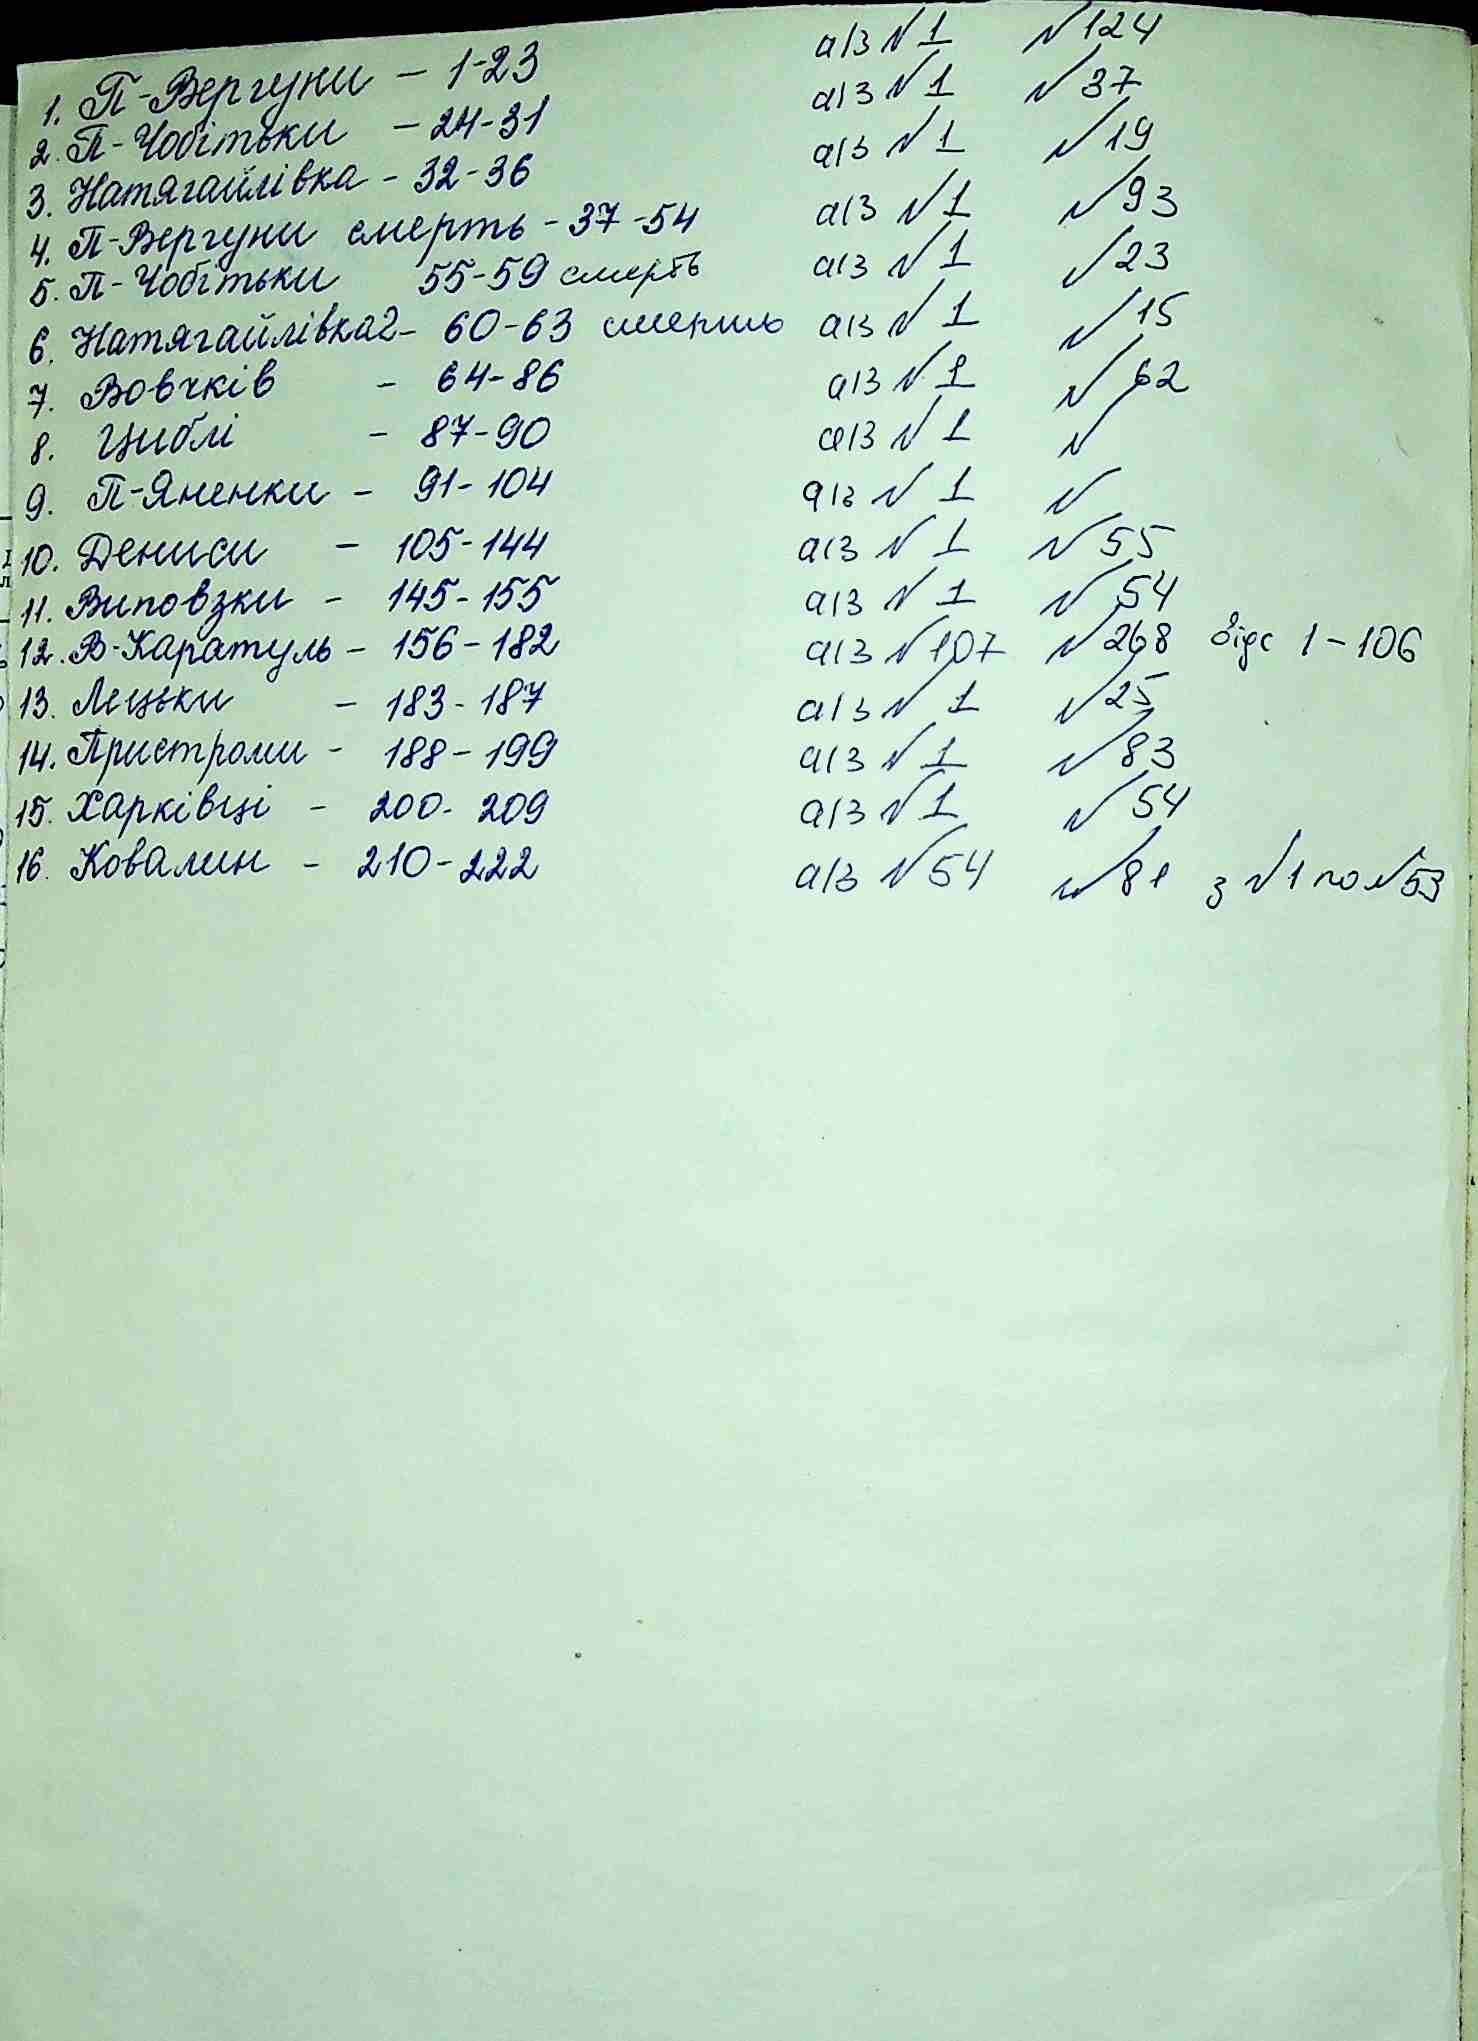 1. П-Вергуни - 1-23 а/з №1 №124
2. П-Чобітьки - 24-31 а/з №1 №37
3. Натягайлівка - 32-36 а/з №1 №19
4. П-Вергуни смерть - 37-54 а/з №1 №93
5. П-Чобітьки 55-59 смерть а/з №1 №23
6. Натягайлівка2- 60-63 смерть а/з №1 №15
7. Вовчків - 64-86 а/з №1 №62
8. Циблі - 87-90 а/з №1 №
9. П-Яненки - 91-104 а/з №1 №
10. Дениси - 105-144 а/з №1 №55
11. Виповзки - 145-155 а/з №1 №54
12. В-Каратуль - 156-182 а/з №107 №268 відс 1-106
13. Лецьки - 183-187 а/з №1 №25
14. Пристроми - 188-199 а/з №1 №83
15. Харківці - 200-209 а/з №1 №54
16. Ковалин - 210-222 а/з №54 №81 з №1 по №53